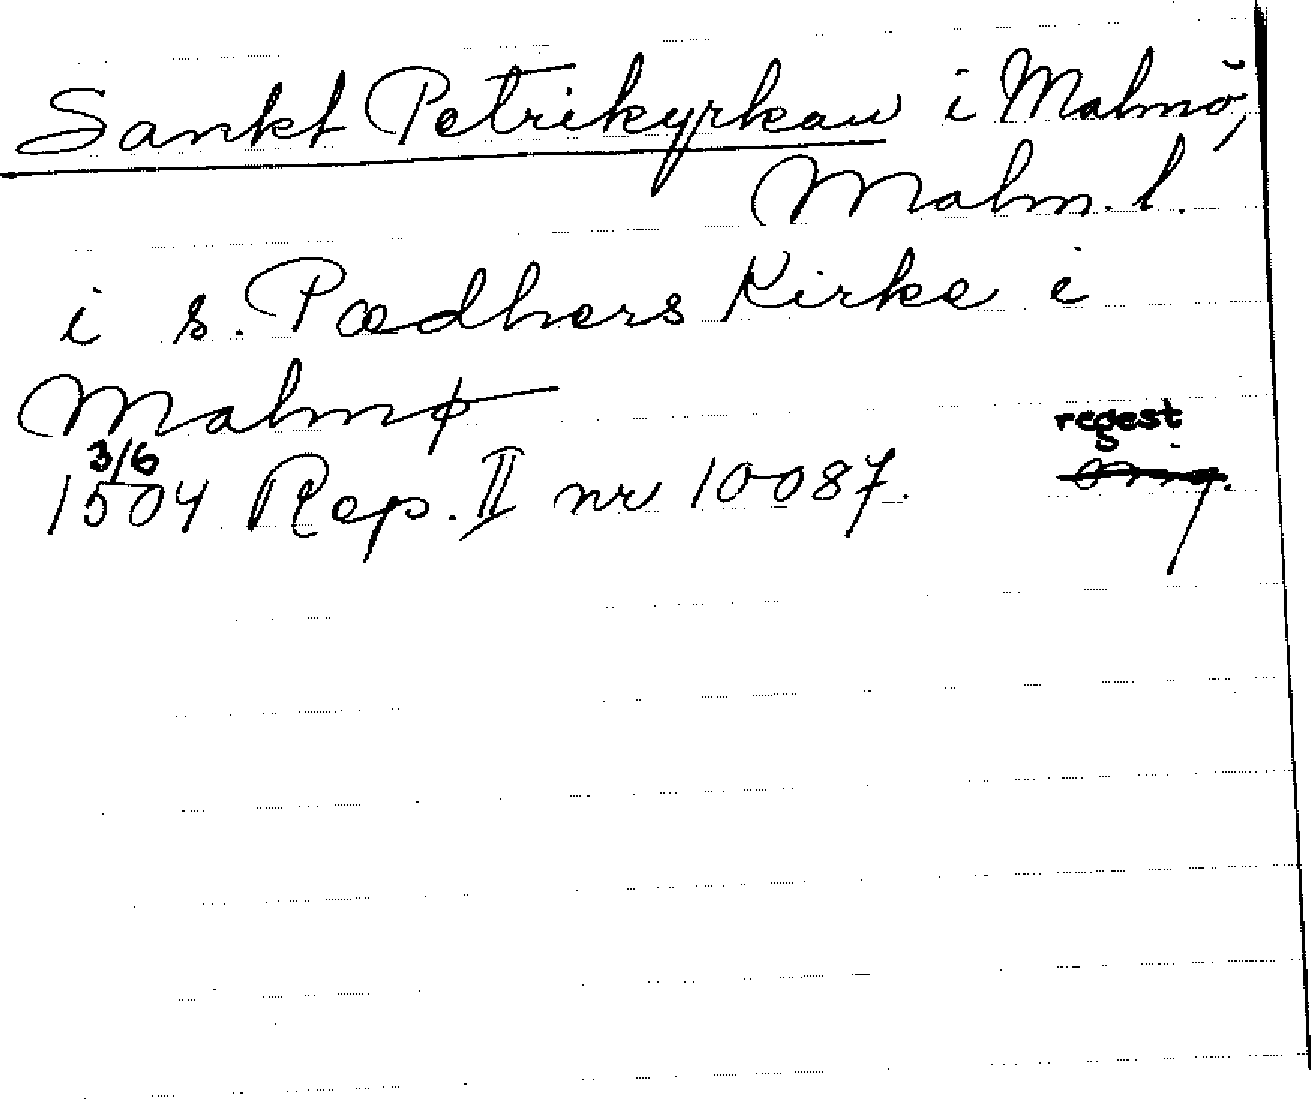 Sankt Petrikyrkan i Malmö,
Malm. l.
i s. Pædhers Kirke i
Malmø
regest
3/6
1504 Rep. II nr 10087.